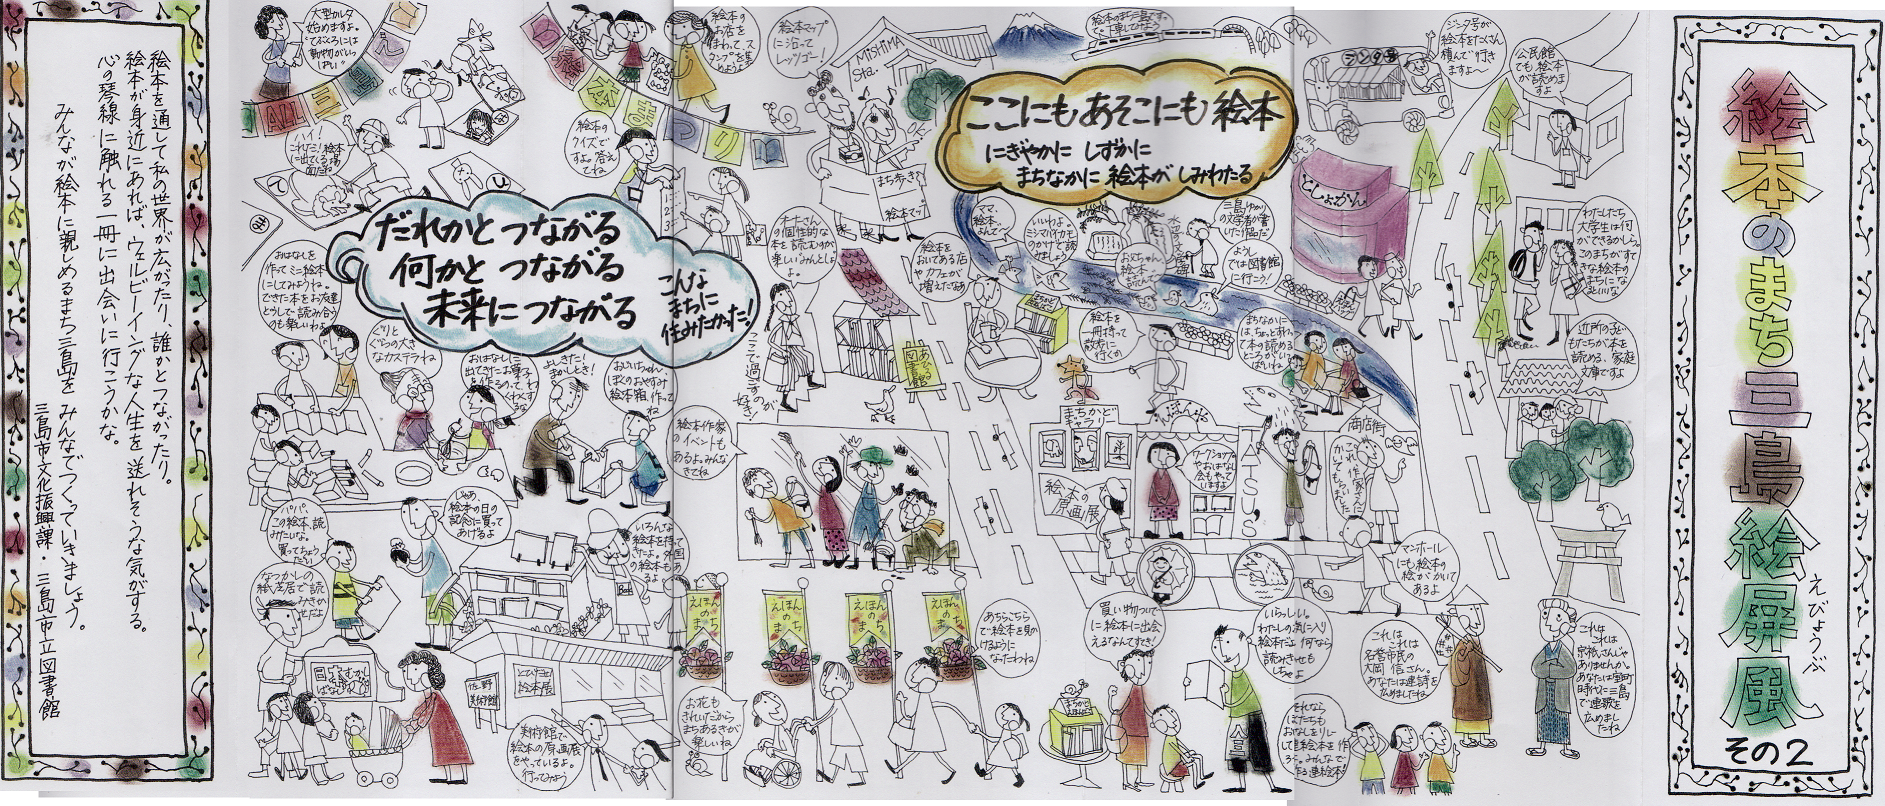 絵本のまち三島絵屏風
えびょうぶ
その2
ここにもあそこにも絵本
にぎやかに しずかに
まちなかに 絵本が しみわたる
だれかと つながる
何かと つながる
未来に つながる
こんな
まちに
住みたかった!
公民館
でも絵本
が読めま
すよ
ジンタ号が
絵本をたくさん
積んで行き
ますよ〜
ジンタ号
としょかん
わたしたち
大学生は何
ができるかしら。
このまちがすて
きな絵本の
まちになる
といいな
近所の子ど
もたちが本を
読める、家庭
文庫ですよ
MISHIMA
Sta.
絵本マップ
に沿って
レッツゴー!
絵本の
お店を
まわって、ス
タンプを集
めようよ
まち歩き
絵本マップ
絵本の
クイズで
すよ。答え
てね
大型カルタ
始めますよ。
てぶくろには
動物がいっ
ぱい
ハイ!
これだ!絵本
に出てくる場
面だね
ママ、
絵本
よんで
いいわよ。
三島ゆかり
の文学者が書
いた作品だ
ようし
では図書館
に行こう!
絵本を
おいてある店
やカフェが
増えたなあ
オトナさん
の個性的な
本を読むのが
楽しいみたいよ
ここで過ごすのが
好き!
絵本を
一冊持って
散歩に
行くか
まちなかに
は、ちょっと座っ
て本の読める
ところがいっ
ぱいね
おはなしを
作ってミニ絵本
にしてみようね。
できた本をお友達
どうしで読み合う
のも楽しいわよ
ぐりと
ぐらの大き
なカステラね
おはなしに
出てきたお菓子
を作るので、わ
くわくす
るな
よしきた!
まかしとき!
おじいちゃん
ぼくのおやすみ
絵本箱、作って
ね
絵本作家
のイベントも
あるよ。みんな
きてね
まちかど
ギャラリー
絵本の
原画展
ワークショップ
やおはなし
会もやって
いますよ
商店街
マンホール
にも絵本の
絵がかいて
あるよ
パパ、
この絵本読
みたいな。
買ってちょう
だい
じゃあ、
絵本の日の
記念に買って
あげるよ
いろんな
絵本を持って
きたよ。外国
の絵本もあ
るよ
なつかしの
紙芝居で読
みきか
せだよ
佐野
美術館
とびだす
絵本展
美術館で
絵本の原画展
をやっているよ。
行ってみよう
えほん
のまち
えほん
のまち
えほん
のまち
えほん
のまち
あちらこちら
で絵本を見か
けるように
なったわね
お花も
きれいだから
まちあるきが
楽しいね
買い物ついで
に絵本に出会
えるなんてすてき!
いらっしい。
わたしの気に入り
絵本だよ。何なら
読みきせも
しちゃよ
これは
これは
名誉市民の
大岡信さん。
あなたは連詩を
広めましたね
これは
これは
宗祇さんじゃ
ありませんか。
あなたは室町
時代に三島
で連歌を
広めまし
たね
それなら
ぼくたちも
おはなしをリレー
して連絵本を作
ろう。みんなで
作る連絵本!
絵本を通して私の世界が広がったり、誰かとつながったり。
絵本が身近にあれば、ウェルビーイングな人生を送れそうな気がする。
心の琴線に触れる一冊に出会いに行こうかな。
みんなが絵本に親しめるまち三島を みんなでつくっていきましょう。
三島市文化振興課・三島市立図書館